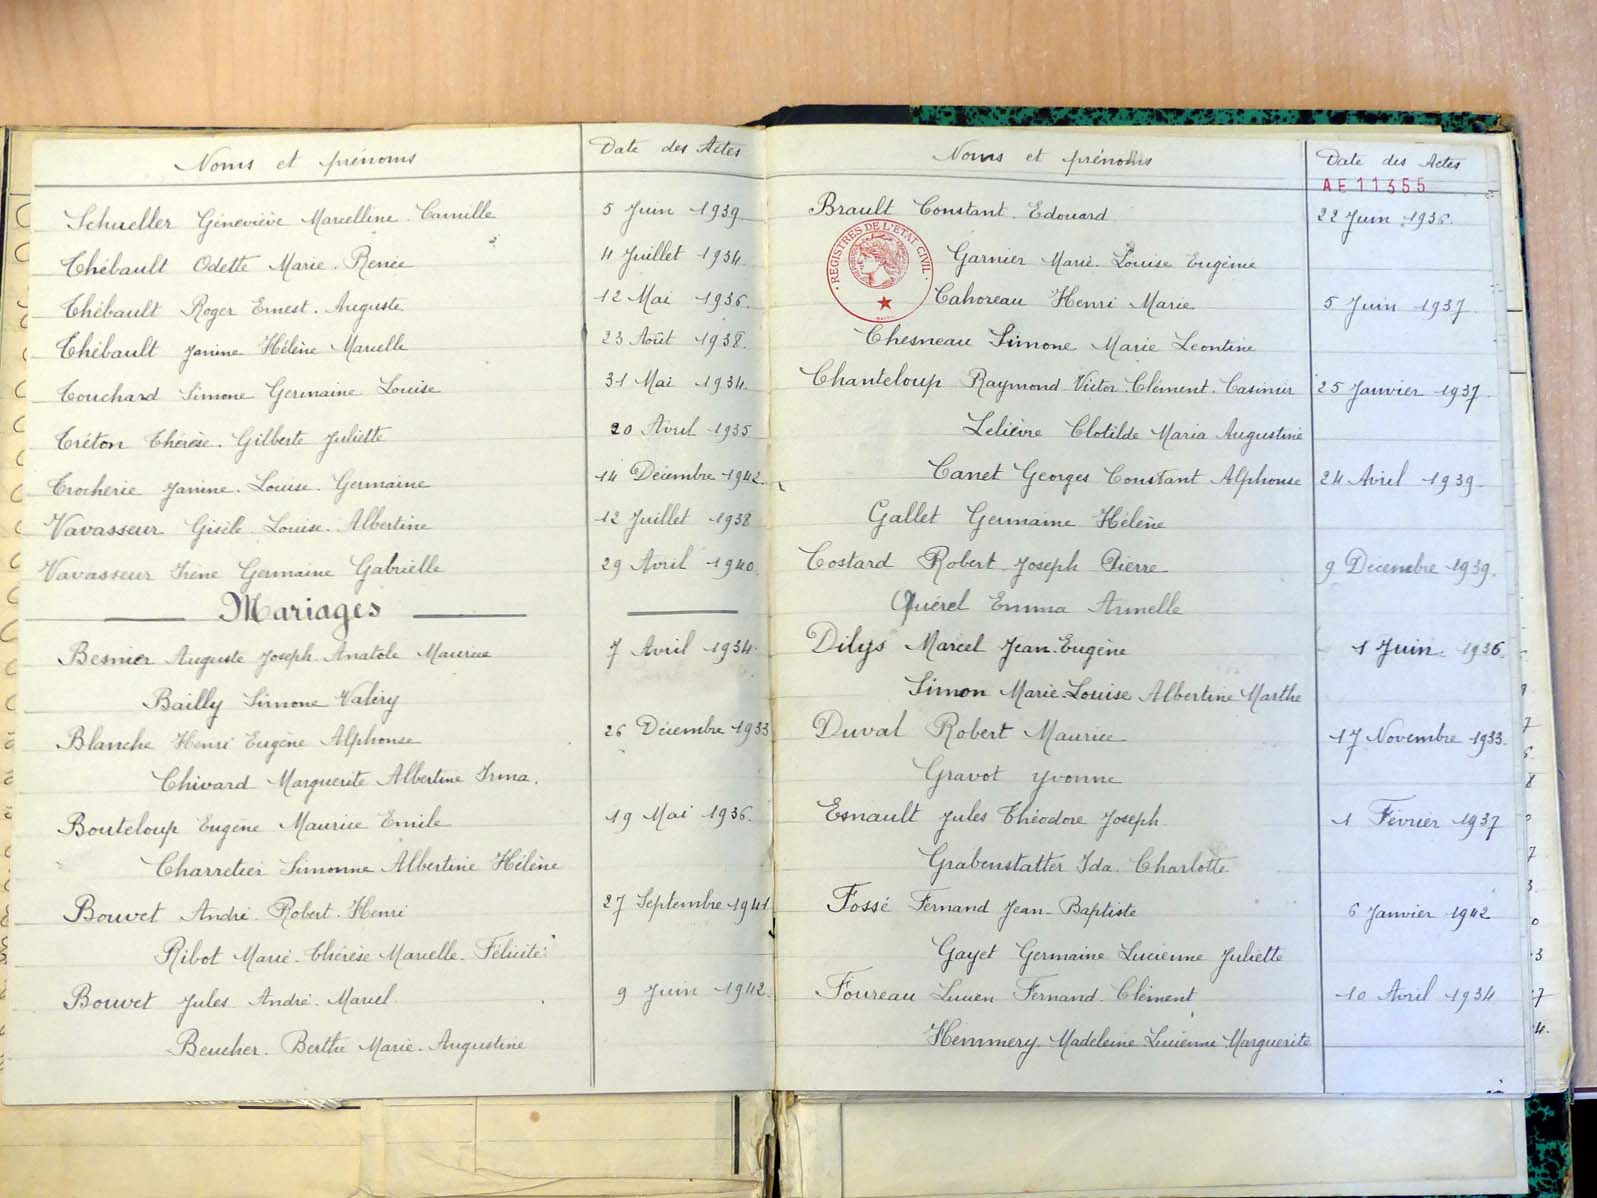 Noms et prénoms Date des Actes
Schueller Géneviève Marcelline. Camille 5 Juin 1939
Thébault Odette Marie. Renée 4 Juillet 1934
Thébault Roger Ernest. Auguste 12 Mai 1936.
Thébault Janine Hélène Marcelle 23 Août 1938.
Touchard Simone Germaine Louise 31 Mai 1934
Tréton Thérèse. Gilberte Juliette 20 Avril 1935
Trocherie Janine. Louise. Germaine 14 Décembre 1942
Vavasseur Gisèle Louise. Albertine 12 Juillet 1938
Vavasseur Irène Germaine Gabrielle 29 Avril 1940
Mariages
Besnier Auguste Joseph Anatole Maurice 7 Avril 1934
Bailly Simone Valéry
Blanche Henri Eugène Alphonse 26 Décembre 1933
Chivard Marguerite Albertine Irma.
Bouteloup Eugène Maurice Emile 19 Mai 1936.
Charretier Simonne Albertine Hélène
Bouvet André. Robert. Henri 27 Septembre 1941
Ribot Marie. Thérèse Marcelle. Félicité
Bouvet Jules André. Marcel 9 Juin 1942
Beucher. Berthe Marie. Augustine
Noms et prénoms Date des Actes
AE11355
Brault Constant. Edouard 22 Juin 1936.
REGISTRES DE L'ETAT CIVIL
Garnier Marie. Louise Eugénie
Cahoreau Henri Marie 5 Juin 1937
Chesneau Simone Marie Leontine
Chanteloup Raymond Victor. Clément. Casimir 25 Janvier 1937
Lelièvre Clotilde Maria Augustine
Canet Georges Constant Alphonse 24 Avril 1939
Gallet Germaine Hélène
Costard Robert Joseph Pierre 9 Décembre 1939.
Quérel Emma Armelle
Dilys Marcel Jean. Eugène 1 Juin 1936
Simon Marie-Louise Albertine Marthe
Duval Robert Maurice 17 Novembre 1933.
Gravot Yvonne
Esnault Jules Théodore Joseph 1 Février 1937
Grabenstatter Ida. Charlotte
Fossé Fernand Jean-Baptiste 6 Janvier 1942
Gayet Germaine Lucienne Juliette
Foureau Lucien Fernand. Clément 10 Avril 1934
Hemmery. Madeleine Lucienne Marguerite